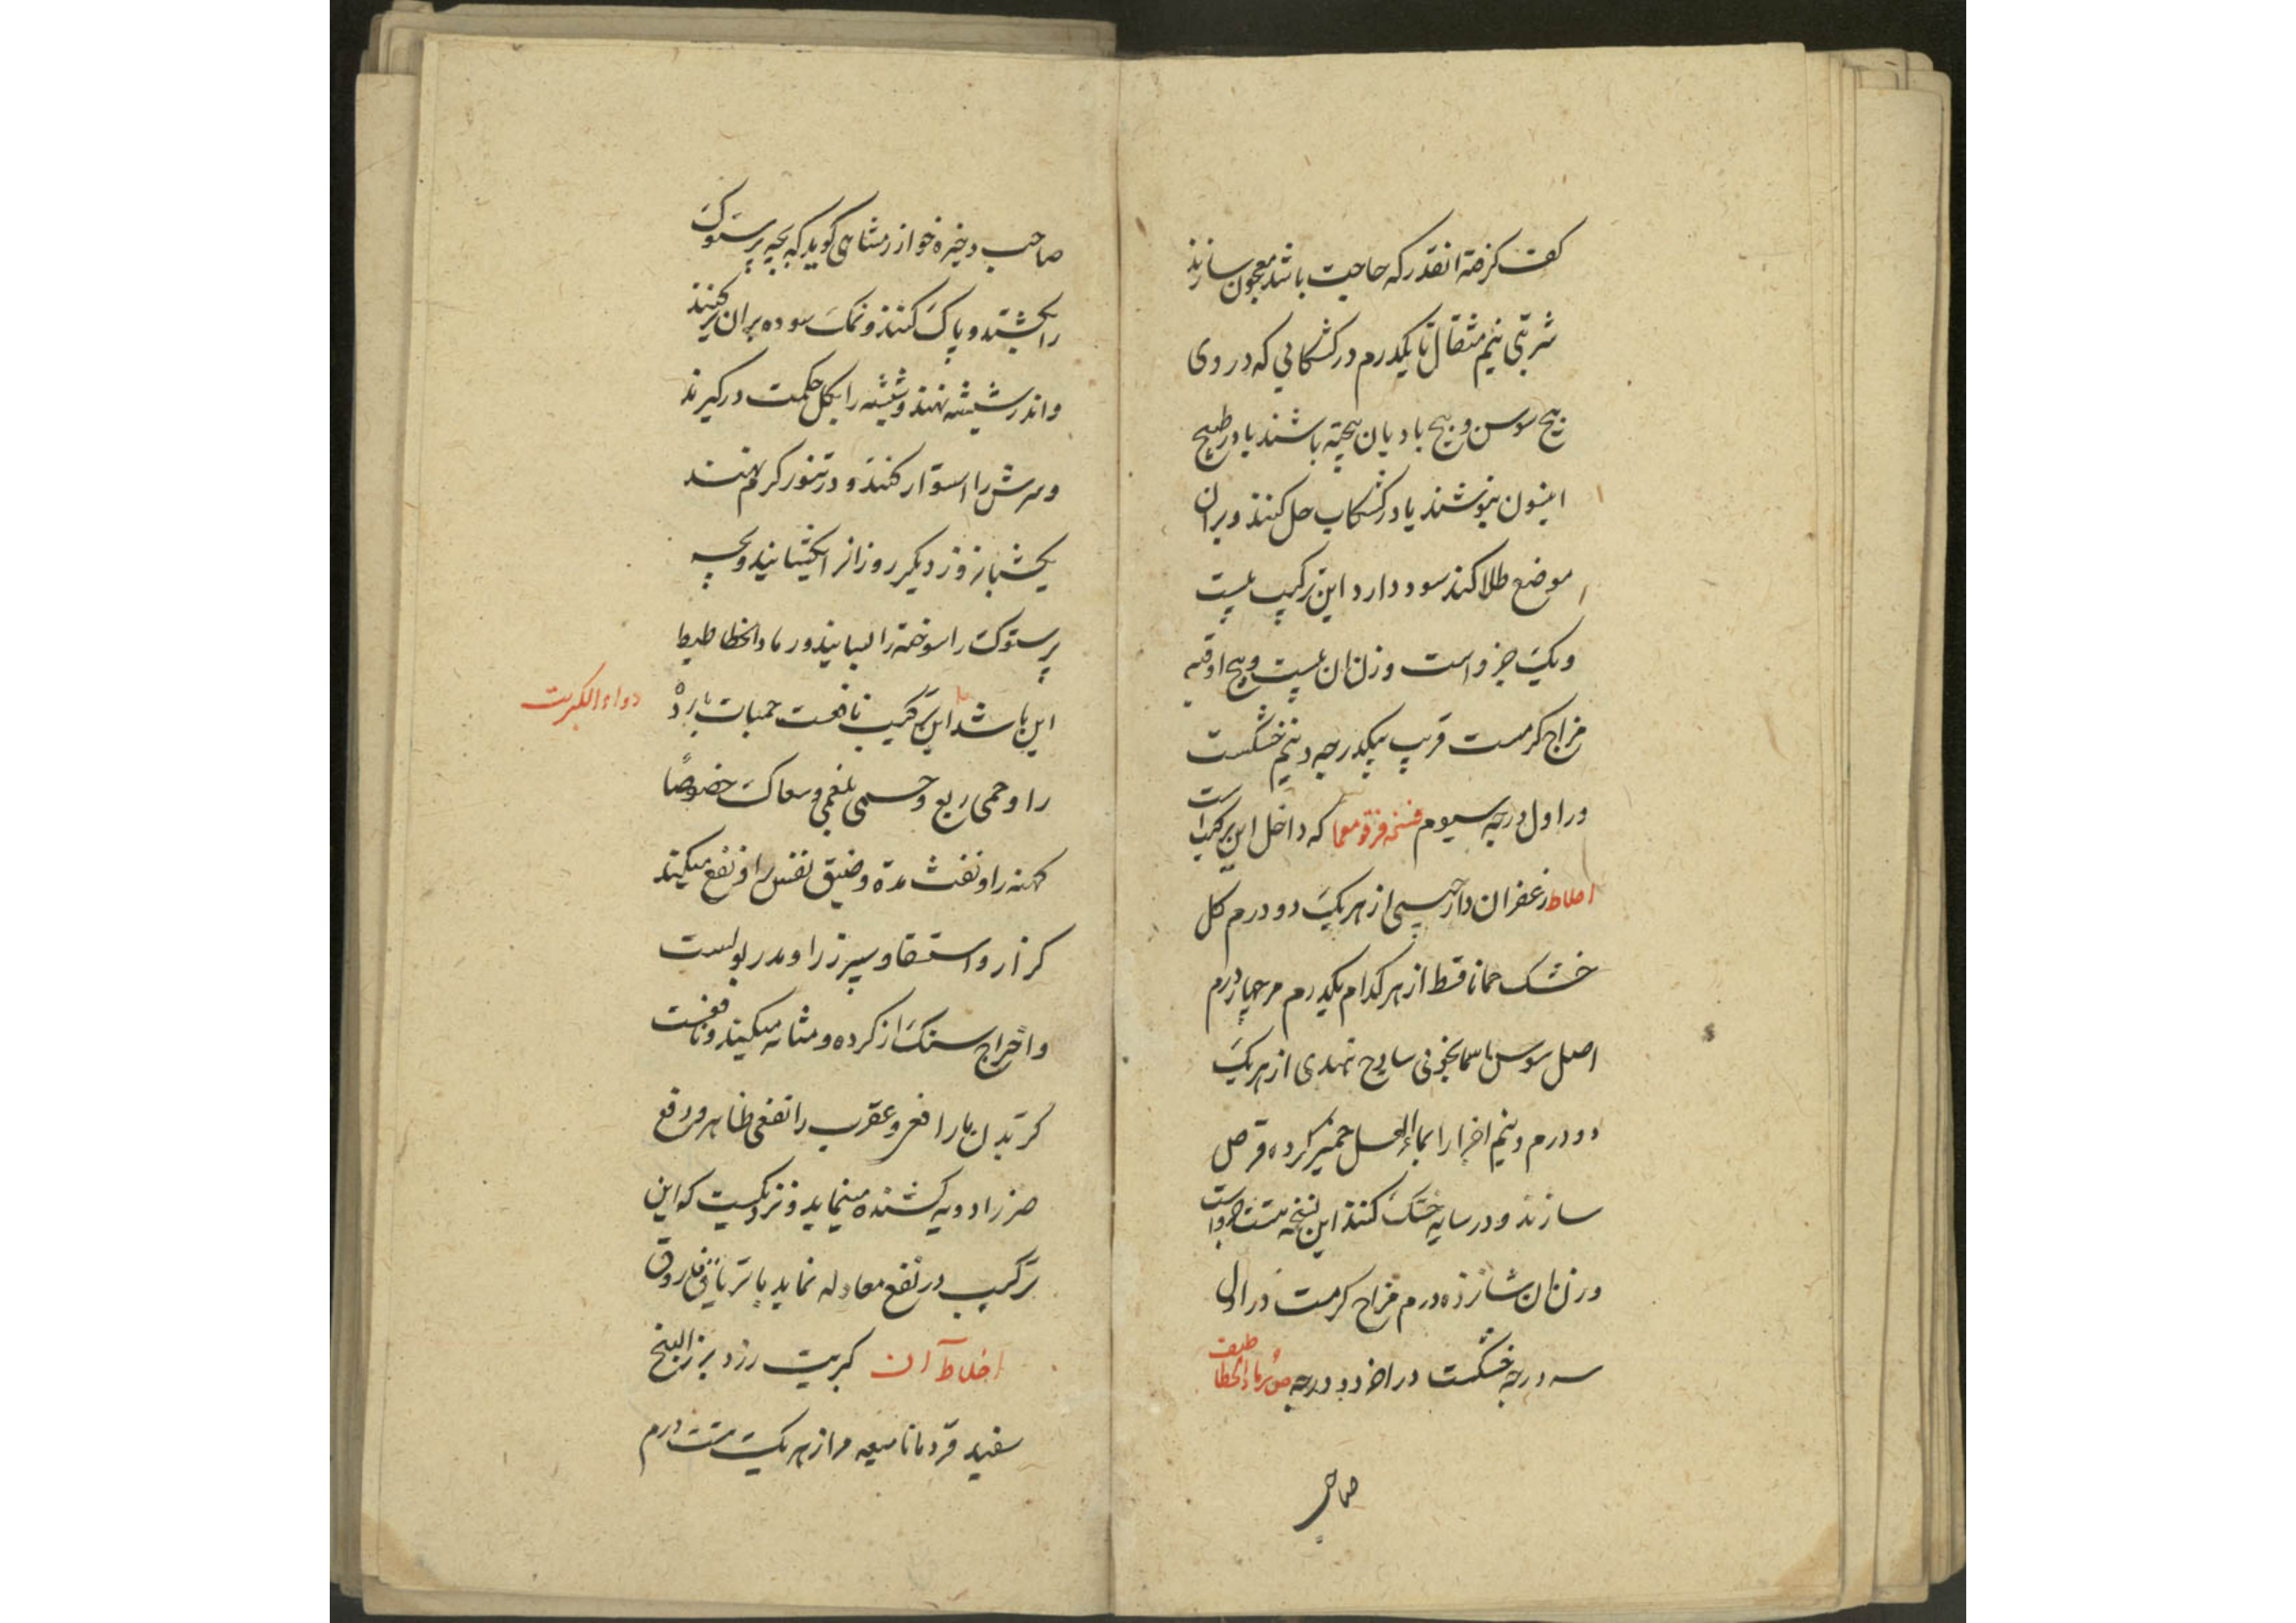 کف گرفته انقدر که حاجت باشد معجون سازند
شربتی نیم مثقال تا یکدرم در کشکابی که در وی
بیخ سوسن و بیخ بادیان پخته باشند یا در طبیخ
انیسون بنوشند یا در کشکاب حل کنند و بران
موضع طلا کند سود دارد این ترکیب بیست
ویک جزو است وزن ان بیست و پنج اوقیه
مزاج کرمست قریب بیکدرجه و نیم خشکست
در اول درجه سیوم نسخه قرقومعما که داخل این ترکیب است
اخلاط زعفران دارچینی از هر یک دو درم کل
خشک حماما قسط از هر کدام یکدرم مر چهار درم
اصل سوس اسمانجونی سادج هندی از هر یک
دو درم و نیم اجزا را بماء العسل خمیر کرده قرص
سازند و در سایه خشک کنند این نسخه هشت جزو است
وزن ان شانزده درم مزاج کرمست در اول
سه درجه خشکست در اخر دو درجه صفت رماد الخطاطیف
صاحب
صاحب ذخیره خوارزمشاهی کوید که بچه پرستوک
را بکشند و پاک کنند و نمک سوده بران پرکنند
و اندر شیشه نهند و شیشه را بکل حکمت درکیرند
و سرش را استوار کنند و در تنور کرم نهند
یکشبانروز دیکر روز انرا بکشایند و بچه
پرستوک را سوخته را بسایند و رماد الخطاطیط
این باشد این ترکیب نافعست حمیات بارده
دواء الکبریت
را و حمی ربع و حمی بلغمی و سعال خصوصا
کهنه را و نفث مده و ضیق نفس را و نفع میکند
کزاز و استسقا و سپرز را و مدر بولست
و اخراج سنک از کرده و مثانه میکند و نافعست
کزیدن مار افعی و عقرب را نفعی ظاهر و دفع
ضرر ادویه کشنده مینماید و نزدیکست که این
ترکیب در نفع معادله نماید با تریاق فاروق
اخلاط آن کبریت زرد بزر البنج
سفید قردمانا میعه مر از هر یک هشت درم